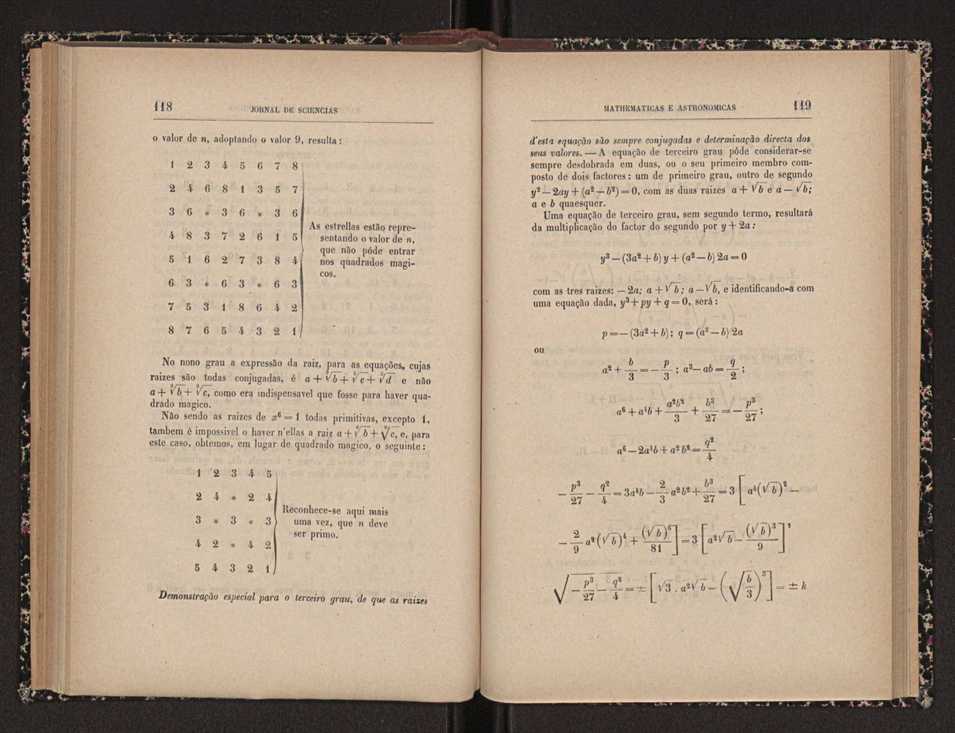 118 JORNAL DE SCIENCIAS
o valor de n, adoptando o valor 9, resulta:
1 2 3 4 5 6 7 8
2 4 6 8 1 3 5 7
3 6 * 3 6 * 3 6
4 8 3 7 2 6 1 5
5 1 6 2 7 3 8 4
6 3 * 6 3 * 6 3
7 5 3 1 8 6 4 2
8 7 6 5 4 3 2 1
As estrellas estão repre-
sentando o valor de n,
que não póde entrar
nos quadrados magi-
cos.
No nono grau a expressão da raiz, para as equações, cujas
raizes são todas conjugadas, é a + √b + √c + √d e não
a + √b + √c, como era indispensavel que fosse para haver qua-
drado magico.
Não sendo as raizes de x⁶ = 1 todas primitivas, excepto 1,
tambem é impossivel o haver n'ellas a raiz a + √b + √c, e, para
este caso, obtemos, em lugar de quadrado magico, o seguinte:
1 2 3 4 5
2 4 * 2 4
3 * 3 * 3
4 2 * 4 2
5 4 3 2 1
Reconhece-se aqui mais
uma vez, que n deve
ser primo.
Demonstração especial para o terceiro grau, de que as raizes
MATHEMATICAS E ASTRONOMICAS 119
d'esta equação são sempre conjugadas e determinação directa dos
seus valores. — A equação de terceiro grau póde considerar-se
sempre desdobrada em duas, ou o seu primeiro membro com-
posto de dois factores: um de primeiro grau, outro de segundo
y² — 2ay + (a² — b²) = 0, com as duas raizes a + √b e a — √b;
a e b quaesquer.
Uma equação de terceiro grau, sem segundo termo, resultará
da multiplicação do factor do segundo por y + 2a:
y³ — (3a² + b) y + (a² — b) 2a = 0
com as tres raizes: — 2a; a + √b; a — √b, e identificando-a com
uma equação dada, y³ + py + q = 0, será:
p = — (3a² + b); q = (a² — b) 2a
ou
a² + b/3 = — p/3; a³ — ab = q/2;
a⁶ + a⁴b + a²b²/3 + b³/27 = — p³/27;
a⁶ — 2a⁴b + a²b² = q²/4
— p³/27 — q²/4 = 3a⁴b — 2/3 a²b² + b³/27 = 3 [a⁴(√b)² —
— 2/9 a²(√b)⁴ + (√b)⁶/81] = 3 [a²√b — (√b)³/9]²
√(— p³/27 — q²/4) = ± [√3 . a²√b — (√(b/3))³] = ± k